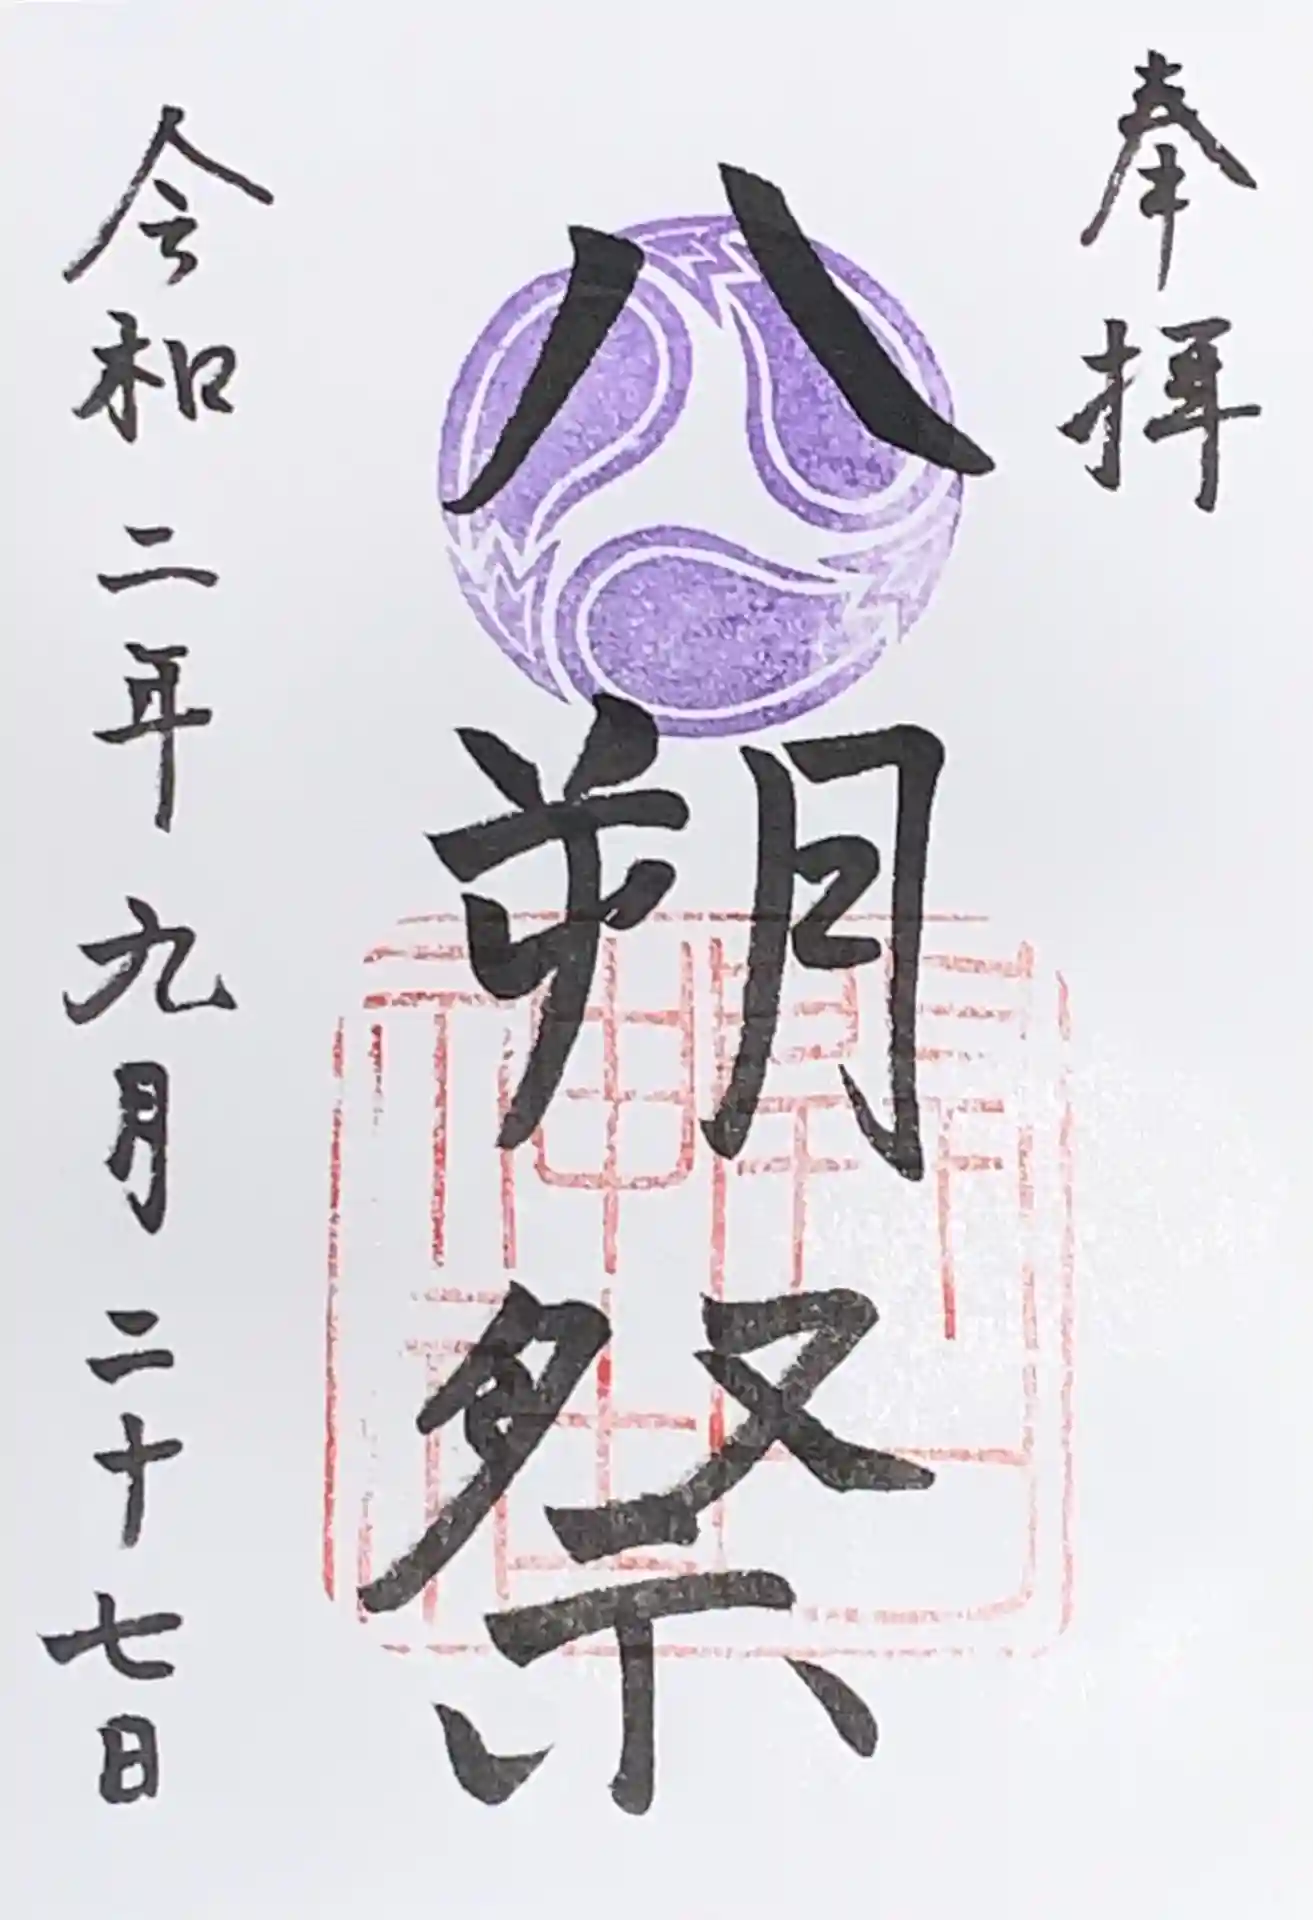 奉拝
八朔祭
令和二年九月二十七日